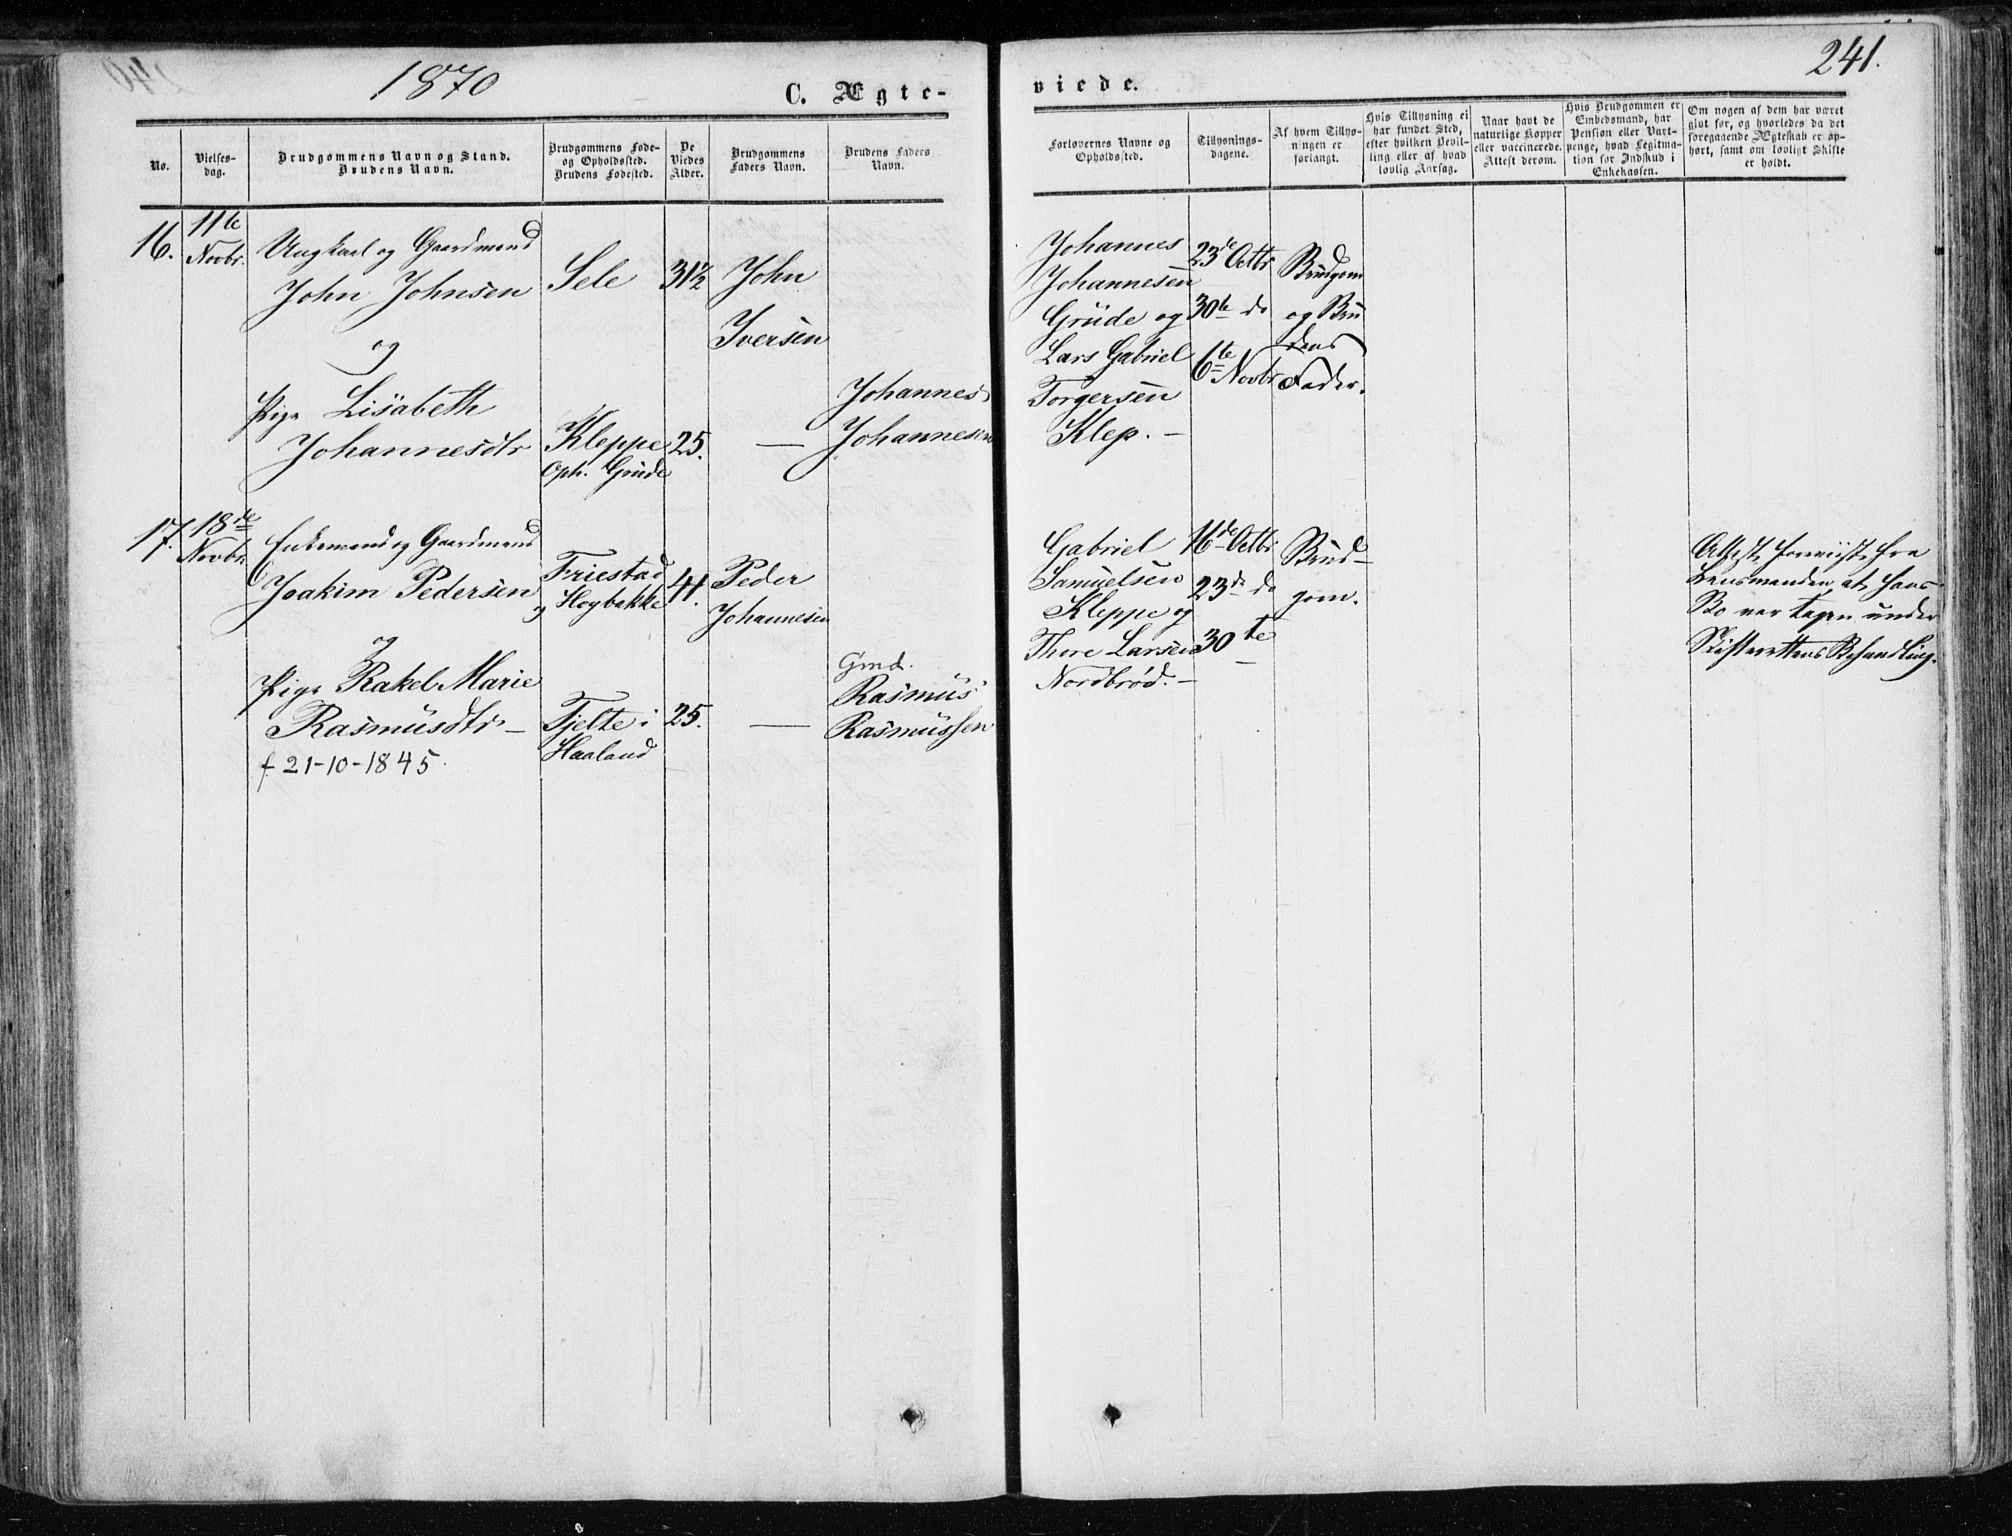 1870
C. Ægte-
viede.
241.
No.
Vielses-
dag.
Brudgommens Navn og Stand.
Brudens Navn.
Brudgommens Føde-
og Opholdssted.
Brudens Fødested.
De
Viedes
Alder.
Brudgommens
Faders Navn.
Brudens Faders
Navn.
Forlovernes Navne og
Opholdssted.
Tillysnings-
dagene.
Af hvem Tillys-
ningen er
forlangt.
Hvis Tillysning ei
har fundet Sted,
efter hvilken Bevil-
ling eller af hvad
lovlig Aarsag.
Naar havt de
naturlige Kopper
eller vaccinerede.
Attest derom.
Hvis Brudgommen er
Embedsmand, har
Pension eller Vart-
penge, hvad Legitma-
tion for Indskud i
Enkekassen.
Om nogen af dem har været
givt før, og hvorledes da det
foregaaende Ægteskab er op-
hørt, samt om lovligt Skifte
er holdt.
16.
11te
Novbr.
Ungkarl og Gaardmand
John Johnsen
og
Pige Lisabeth
Johannesdtr
Sele
Kleppe
Oph. Grude
31½
25.
John
Iversen
—
Johannes
Johannesen
Johannes
Johannesen
Grude og
Lars Gabriel
Torgersen
Klep. —
23de Octbr
30te do
6te Novbr
Brudgom
og Bru
dens
Fader.
17.
18de
Novbr.
Enkemand og Gaardmand
Joakim Pedersen
og
Pige Rakel Marie
Rasmusdtr —
f. 21-10-1845.
Friestad
og Hogbakke
Tjelte i
Haaland
41.
25.
Peder
Johannesen
—
Gmd.
Rasmus
Rasmussen
Gabriel
Samuelsen
Kleppe og
Thore Larsen
Nordbrød. —
16de Octbr
23de do
30te
Brud-
gom.
Attest foreviist fra
Lensmanden, at hans
Bo var tagen under
Skifterettens Behandling.